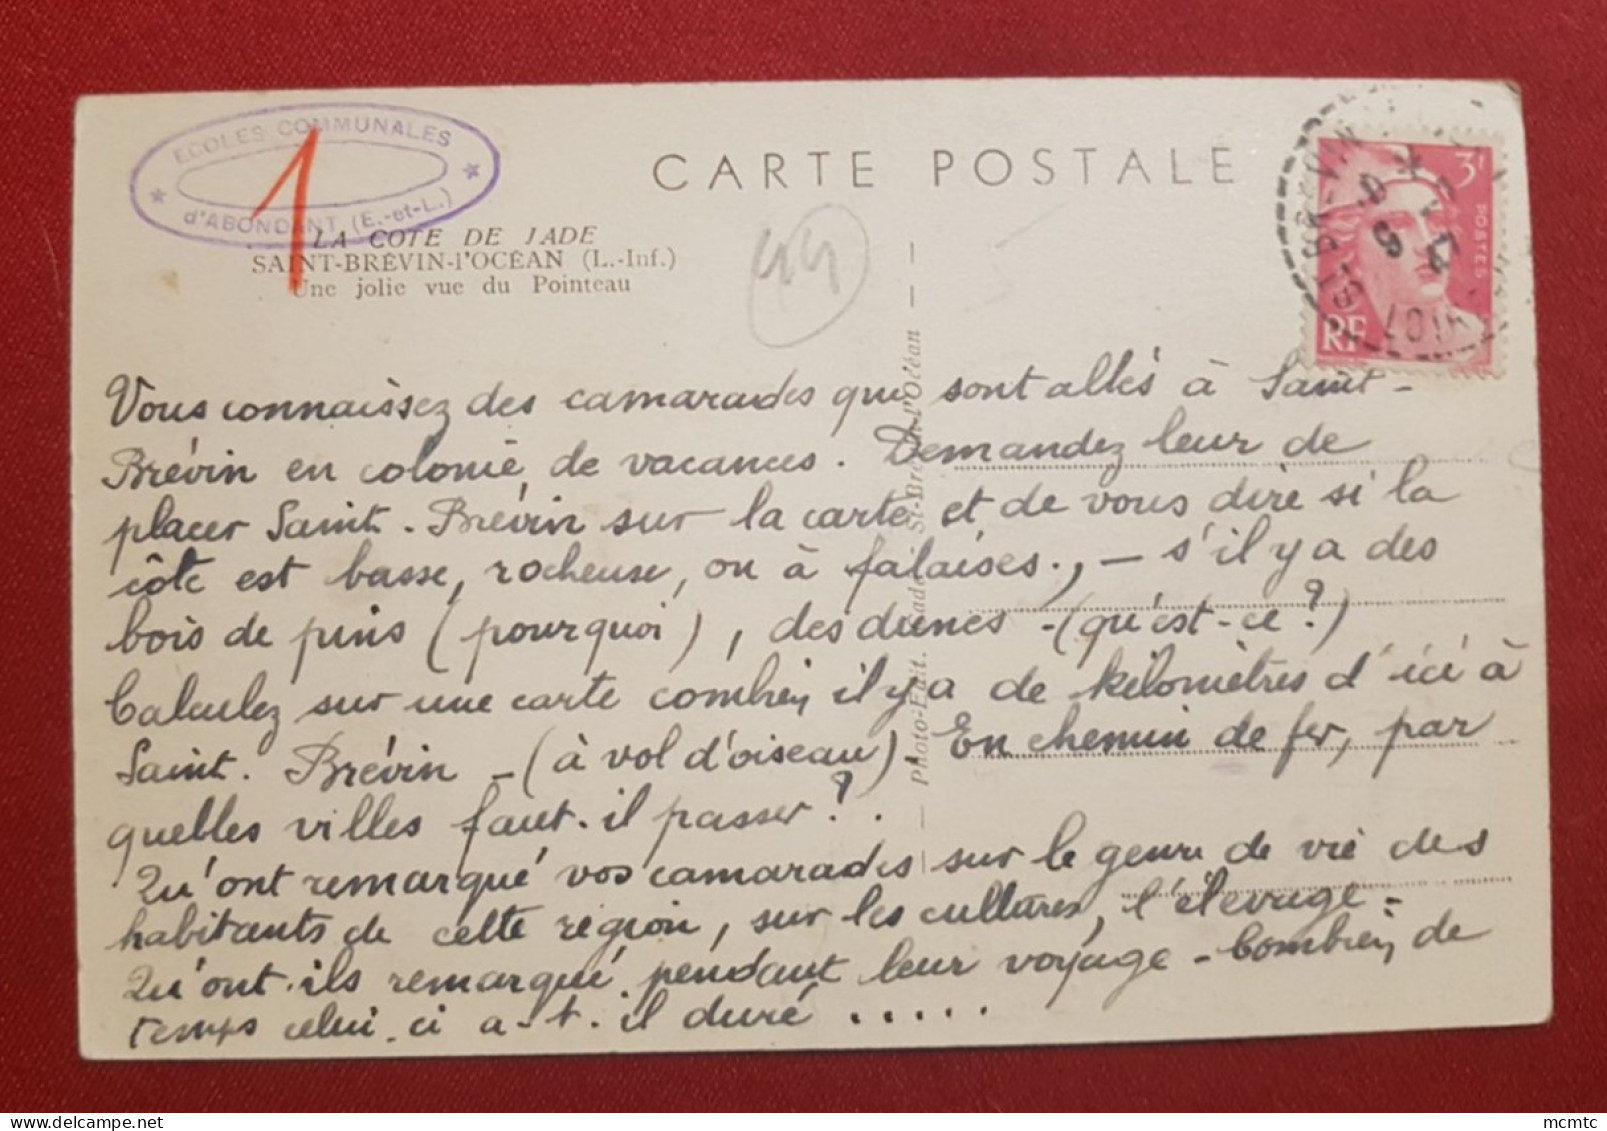 ECOLES COMMUNALES
d'ABONDANT (E.-et-L.)
1
CARTE POSTALE
LA COTE DE JADE
SAINT-BRÉVIN-l'OCÉAN (L.-Inf.)
Une jolie vue du Pointeau
44
3F
POSTES
RF
Vous connaissez des camarades qui sont allés à Saint-
Brévin en colonie de vacances. Demandez leur de
placer Saint-Brévin sur la carte et de vous dire si la
côte est basse, rocheuse, ou à falaises., - s'il y a des
bois de pins (pourquoi), des dunes - (qu'est-ce?)
Calculez sur une carte combien il y a de kilomètres d'ici à
Saint-Brévin - (à vol d'oiseau) - En chemin de fer, par
quelles villes faut-il passer?.
Qu'ont remarqué vos camarades sur le genre de vie des
habitants de cette région, sur les cultures, l'élevage -
Qu'ont-ils remarqué pendant leur voyage - Combien de
temps celui-ci a-t-il duré .....
Photo-Edit. St-Brévin-l'Océan
mcmtc